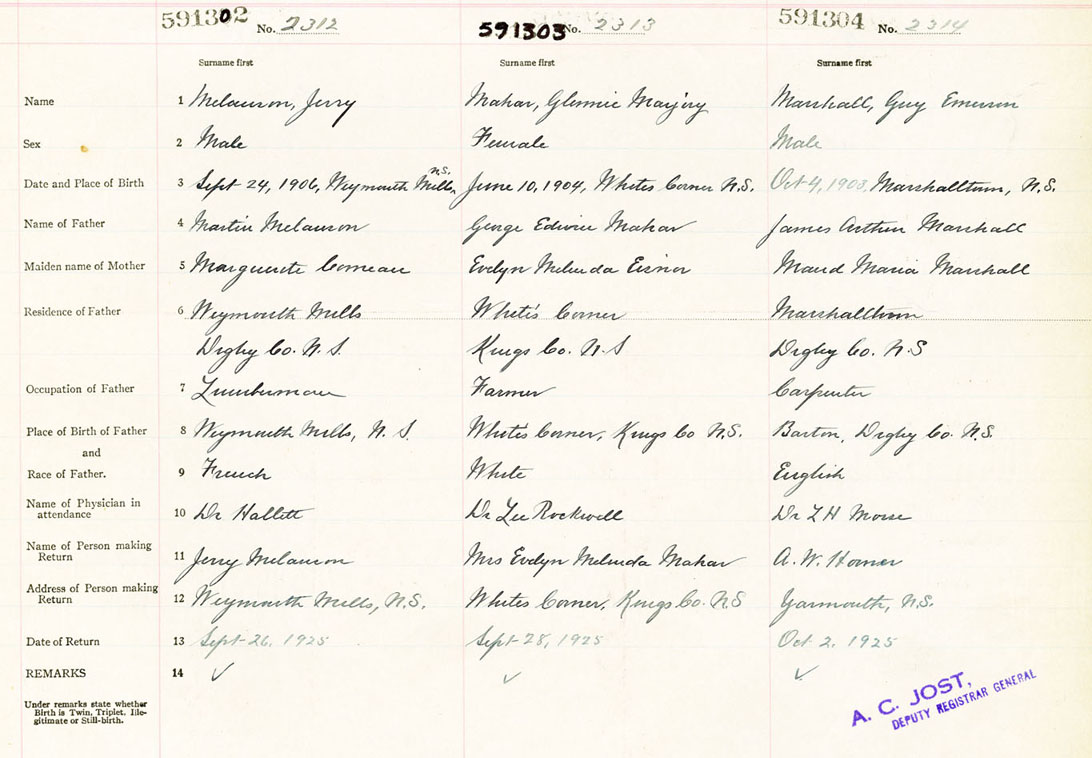 591302 No. 2312 591303 No. 2313 591304 No. 2314
Surname first Surname first Surname first
Name 1 Melanson, Jerry Mahar, Glennie Marjory Marshall, Guy Emerson
Sex 2 Male Female Male
Date and Place of Birth 3 Sept 24, 1906, Weymouth Mills, N.S. June 10, 1904, Whites Corner N.S. Oct 4, 1903, Marshalltown, N.S.
Name of Father 4 Martin Melanson George Edwin Mahar James Arthur Marshall
Maiden name of Mother 5 Marguerite Comeau Evelyn Melinda Eisnor Maud Maria Marshall
Residence of Father 6 Weymouth Mills White's Corner Marshalltown
Digby Co. N.S. Kings Co. N.S Digby Co. N.S
Occupation of Father 7 Lumberman Farmer Carpenter
Place of Birth of Father 8 Weymouth Mills, N.S. White's Corner, Kings Co N.S. Barton, Digby Co. N.S.
and
Race of Father. 9 French White English
Name of Physician in
attendance 10 Dr Hallett Dr Lee Rockwell Dr L H Morse
Name of Person making
Return 11 Jerry Melanson Mrs Evelyn Melinda Mahar A. W. Horner
Address of Person making
Return 12 Weymouth Mills, N.S. Whites Corner, Kings Co. N.S Yarmouth, N.S.
Date of Return 13 Sept 26, 1925 Sept 28, 1925 Oct 2, 1925
REMARKS 14 ✓ ✓ ✓
Under remarks state whether
Birth is Twin, Triplet. Ille-
gitimate or Still-birth.
A. C. JOST,
DEPUTY REGISTRAR GENERAL